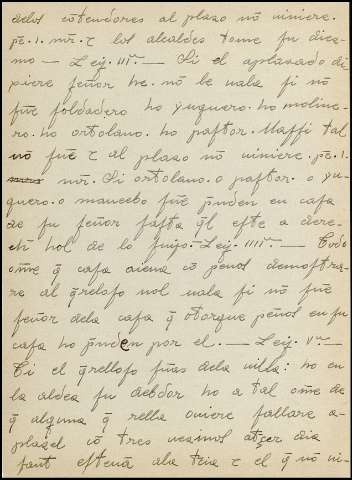 delos contendores al plazo nõ viniere.
pē. 1. mr̃. τ los alcaldes tome su diez-
mo — Ley. IIIª. — Si el aplazado di-
xiere señor he. nõ le uala si nõ
fuẽ soldadero ho yuguero. ho moline-
ro. ho ortolano. ho pastor. Massi tal
nõ fuẽ τ al plazo nõ viniere. pē. 1.
mr̃. Si ortolano. o pastor. o yu-
guero. o mancebo fuẽ p̃nden en casa
de su señor fasta q̃l este a dere-
ch̃ hol de lo suyo. — Ley. IIIIª. — Todo
om̃e q̃ casa agena cõ peños demostra-
re al q̃relloso nol uala si nõ fuẽ
señor dela casa q̃ otorgue peños en su
casa ho p̃nden por el. — Ley. Vª. —
Si el q̃relloso fuas dela uilla: ho en
la aldea su debdor ho a tal om̃e de
q̃ alguna q̃rella ouiere fallare a-
plazel cõ tres uezinos at̃cer dia
fant esteuã ala tcia τ el q̃ nõ ui-